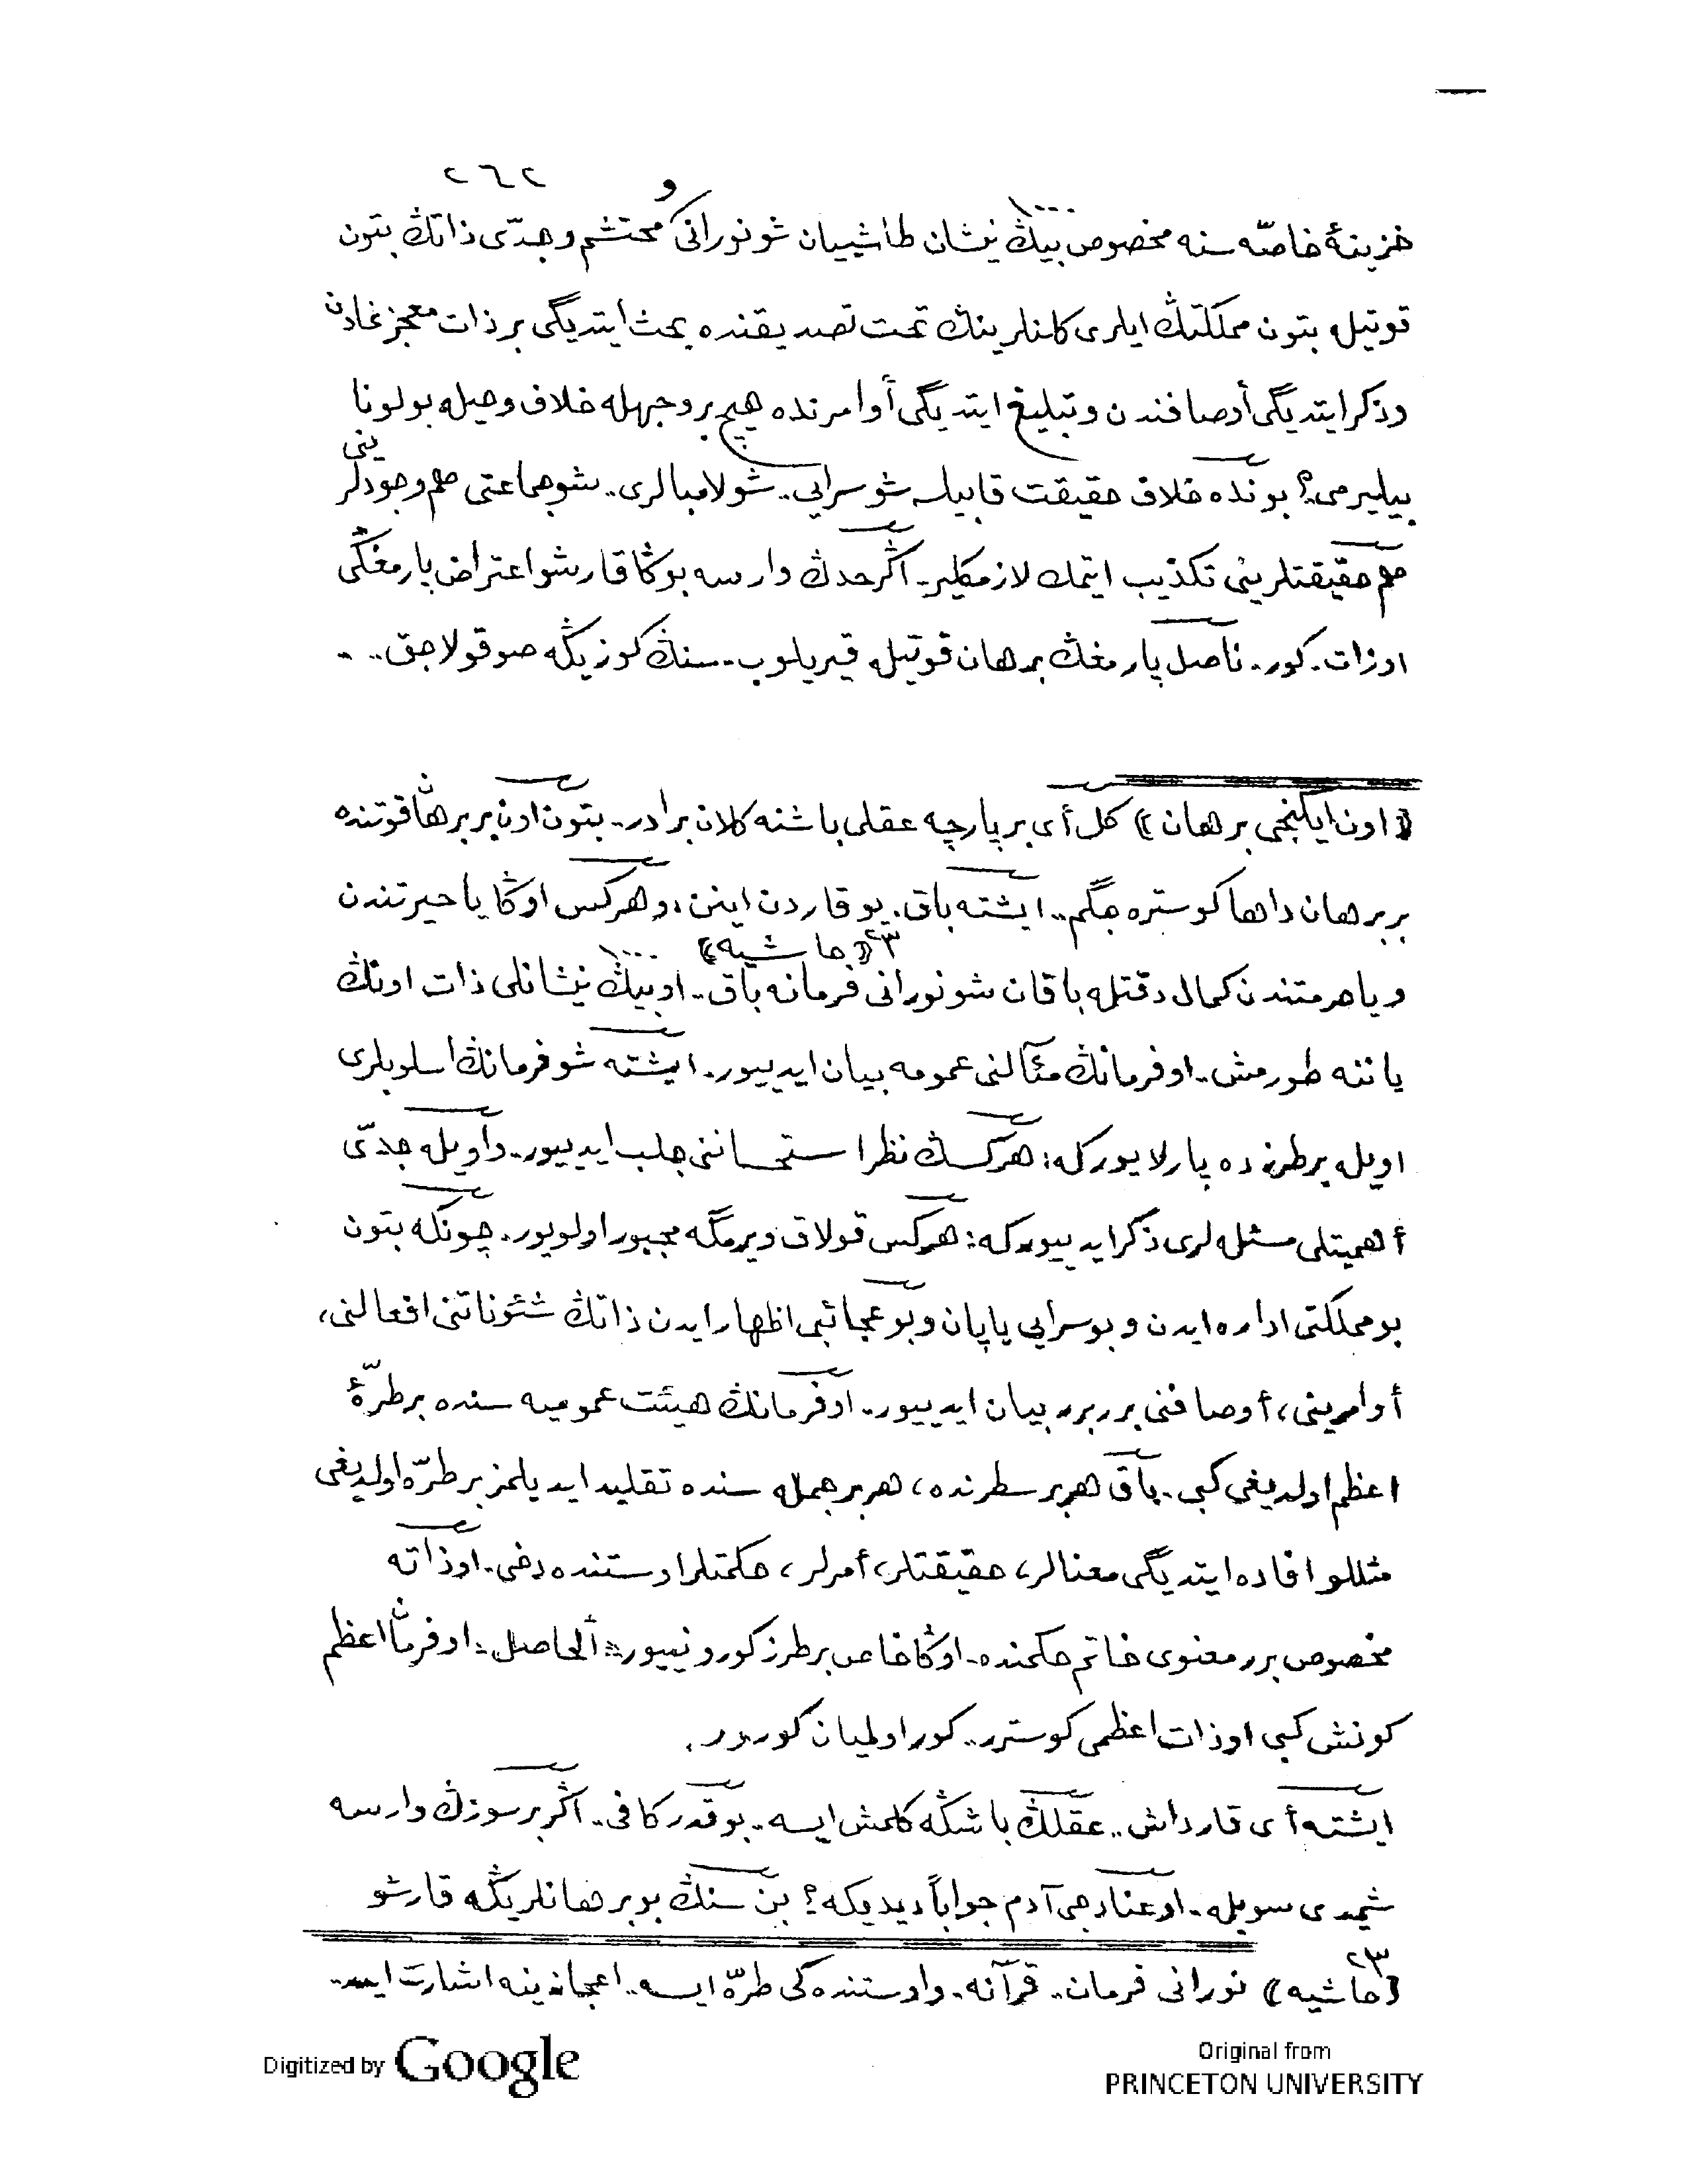 ٢٦٢
خزینهٔ خاصّه سنه مخصوص بیڭ ١٠٠٠ نیشان طاشییان شو نورانی و محتشم وجدّی ذاتڭ بتون
قوتیله بتون مملکتڭ ایلری کلنلرینڭ تحت تصدیقنده بحث ایتدیگی بر ذات معجز نمادن
وذکر ایتدیگی أوصافندن وتبلیغ ایتدیگی أوامرنده هیچ بر وجهله خلاف وحیله بولونا
بیلیرمی؟ بونده خلاف حقیقت قابیلسه شو سرایی.. شو لامبالری.. شو جماعتی هم وجودلرینی
هم حقیقتلرینی تکذیب ایتمك لازمکلیر.. اگر حدڭ وارسه بوڭا قارشو اعتراض پارمغڭی
اوزات. کور.. ناصل پارمغڭ برهان قوتیله قیریلوب.. سنڭ کوزیڭه صوقولاجق..
﴿اون ایکنجی برهان﴾ کل أی بر پارچه عقلی باشنه کلان برادر.. بتون اون بر برهان قوتنده
بر برهان داها کوستره جگم.. ایشته باق. یوقاردن اینن، و هرکس اوڭا یا حیرتندن
﴿حاشیه﴾ ٢٣
ویا حرمتندن کمال دقتله باقان شو نورانی فرمانه باق.. او بیڭ ١٠٠٠ نیشانلی ذات اونڭ
یاننه طورمش.. او فرمانڭ مئآلنی عمومه بیان ایدییور.. ایشته شو فرمانڭ اسلوبلری
اویله برطرزده پارلایورکه: هرکسڭ نظر استحساننی جلب ایدییور.. واویله جدّی
أهمیتلی مسئله لری ذکر ایدییورکه: هرکس قولاق ویرمگه مجبور اولویور. چونکه بتون
بو مملکتی اداره ایدن و بو سرایی یاپان و بو عجائبی اظهار ایدن ذاتڭ شئوناتنی افعالنی،
أوامرینی، أوصافنی برر برر بیان ایدییور.. او فرمانڭ هیئت عمومیه سنده بر طرّهٔ
اعظم اولدیغی کبی.. باق هر بر سطرنده، هر بر جمله سنده تقلید ایدیلمز بر طرّه اولدیغی
مثللو افاده ایتدیگی معنالر، حقیقتلر، أمرلر، حکمتلر اوستنده دخی.. او ذاته
مخصوص برر معنوی خاتم حکمنده.. اوڭا خاص بر طرز کورونییور.: ألحاصل.: او فرمان اعظم
کونش کبی او ذات اعظمی کوسترر.. کور اولمیان کورور.
ایشته أی قارداش.. عقلڭ باشڭه کلمش ایسه.. بو قدر کافی.. اگر بر سوزڭ وارسه
شیمدی سویله.. او عنادجی آدم جواباً دیدیکه؟ بن سنڭ بو برهانلریڭه قارشو
﴿حاشیه﴾ ٢٣ نورانی فرمان.. قرآنه. واوستنده کی طرّه ایسه.. اعجازینه اشارت ایسه..
Digitized by Google
Original from
PRINCETON UNIVERSITY